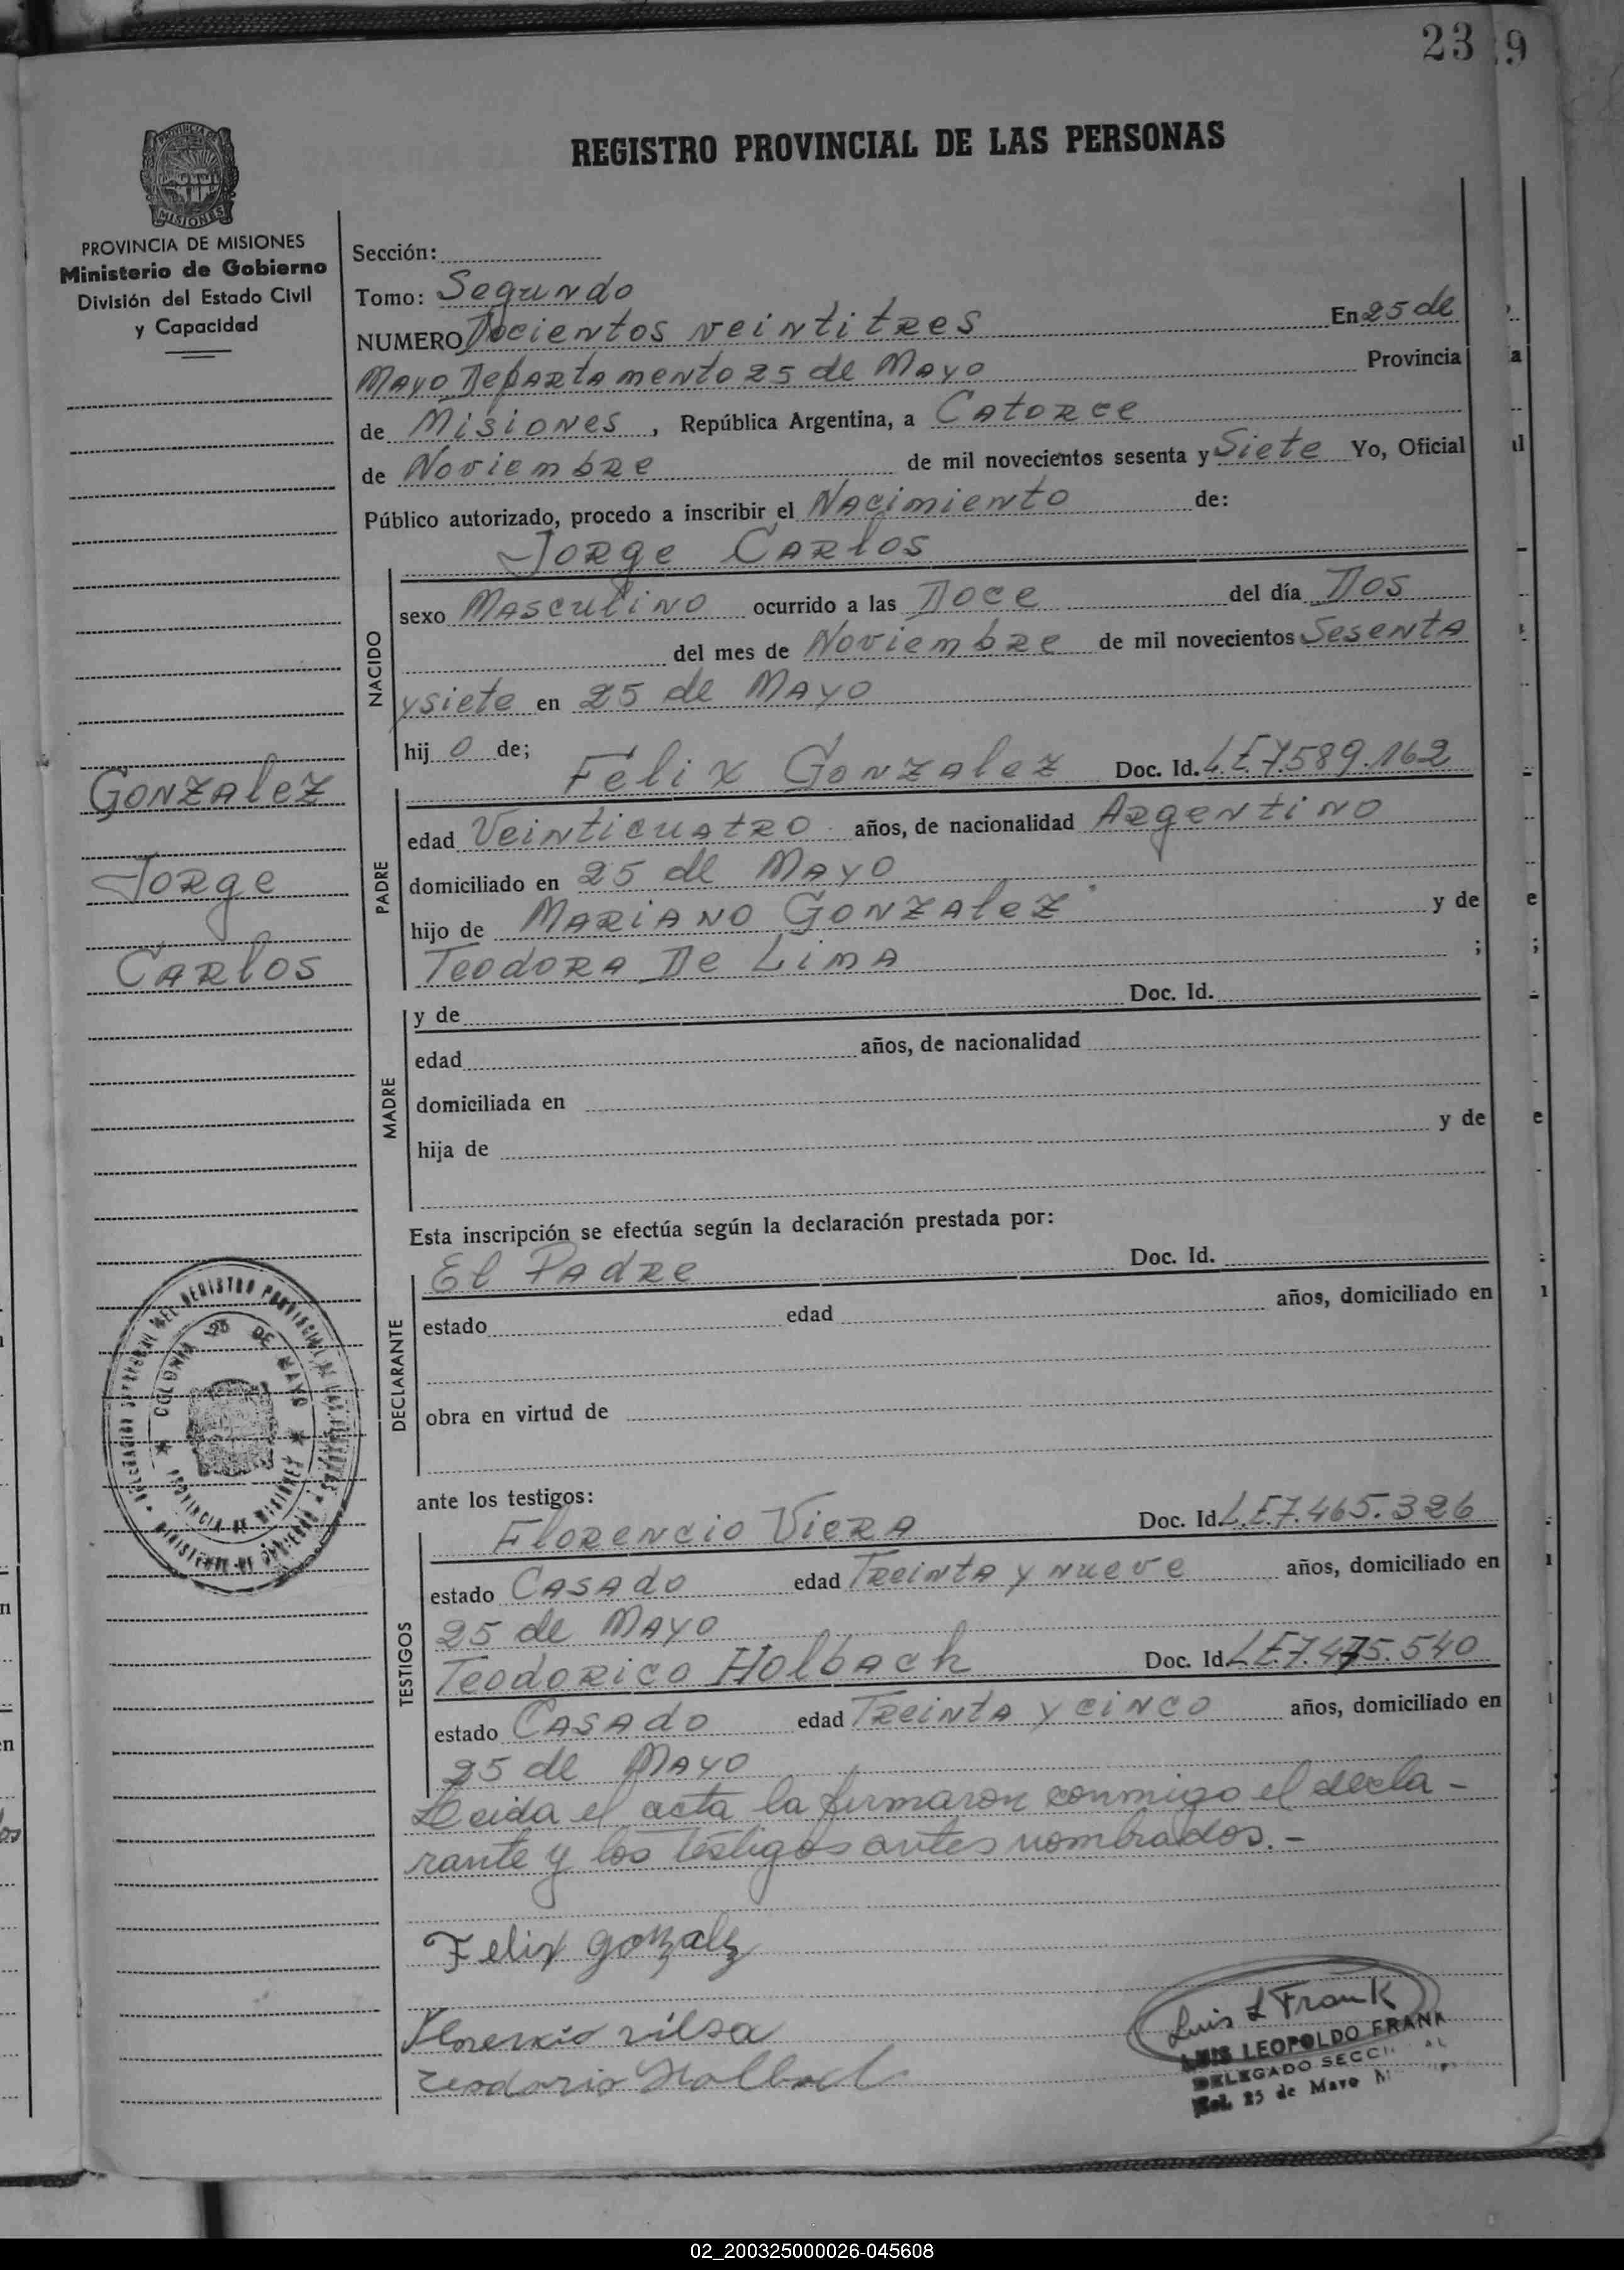 23 9
REGISTRO PROVINCIAL DE LAS PERSONAS
MISIONES
PROVINCIA DE MISIONES
Ministerio de Gobierno
División del Estado Civil
y Capacidad
Sección:
Tomo: Segundo
NUMERO Docientos veintitres En 25 de
Mayo Departamento 25 de Mayo Provincia
de Misiones, República Argentina, a Catorce
de Noviembre de mil novecientos sesenta y Siete Yo, Oficial
Público autorizado, procedo a inscribir el Nacimiento de:
Jorge Carlos
NACIDO
sexo Masculino ocurrido a las Doce del día Dos
del mes de Noviembre de mil novecientos Sesenta
y siete en 25 de Mayo
hij o de;
Felix Gonzalez Doc. Id. L.E 7.589.162
Gonzalez
Jorge
Carlos
PADRE
edad Veinticuatro años, de nacionalidad Argentino
domiciliado en 25 de Mayo
hijo de Mariano Gonzalez y de
Teodora De Lima ;
MADRE
y de Doc. Id.
edad años, de nacionalidad
domiciliada en
hija de y de
Esta inscripción se efectúa según la declaración prestada por:
El Padre Doc. Id.
DECLARANTE
estado edad años, domiciliado en
obra en virtud de
COLONIA 25 DE MAYO
PROVINCIA DE MISIONES
ante los testigos:
TESTIGOS
Florencio Viera Doc. Id. L.E.7.465.326
estado Casado edad Treinta y nueve años, domiciliado en
25 de Mayo
Teodorico Holbach Doc. Id. L.E.7.475.540
estado Casado edad Treinta y cinco años, domiciliado en
25 de Mayo
Leida el acta la firmaron conmigo el decla-
rante y los testigos antes nombrados.-
Felix gonzalz
Luis L Frank
LUIS LEOPOLDO FRANK
DELEGADO
Col. 25 de Mayo
02_200325000026-045608